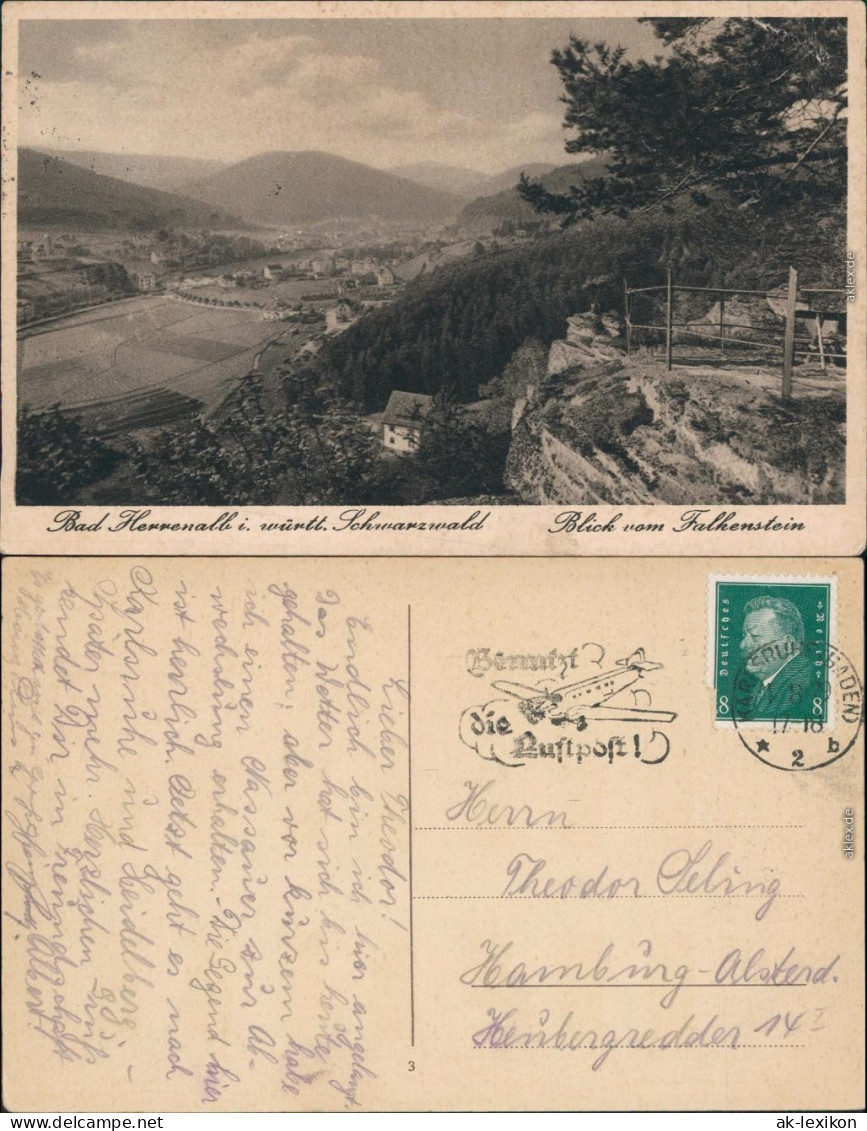 Bad Herrenalb i. württ. Schwarzwald
Blick vom Falkenstein
aklex.de
Lieber Theodor!
Endlich bin ich hier angelangt.
Das Wetter hat sich bis heute
gehalten; aber vor kurzem habe
ich einen Nassauer zur Ab-
wechslung erhalten. Die Gegend hier
ist herrlich. Jetzt geht es nach
Karlsruhe und Heidelberg –
Später mehr. Herzlichen Gruß
sendet Dir in
Albert
Benutzt
die
Luftpost!
Deutsches Reich
8 8
KARLSRUHE (BADEN)
17-18
* 2 b
Herrn
Theodor Seling
Hamburg-Alsterd.
Heubergredder 14 I
3
aklex.de
ak-lexikon